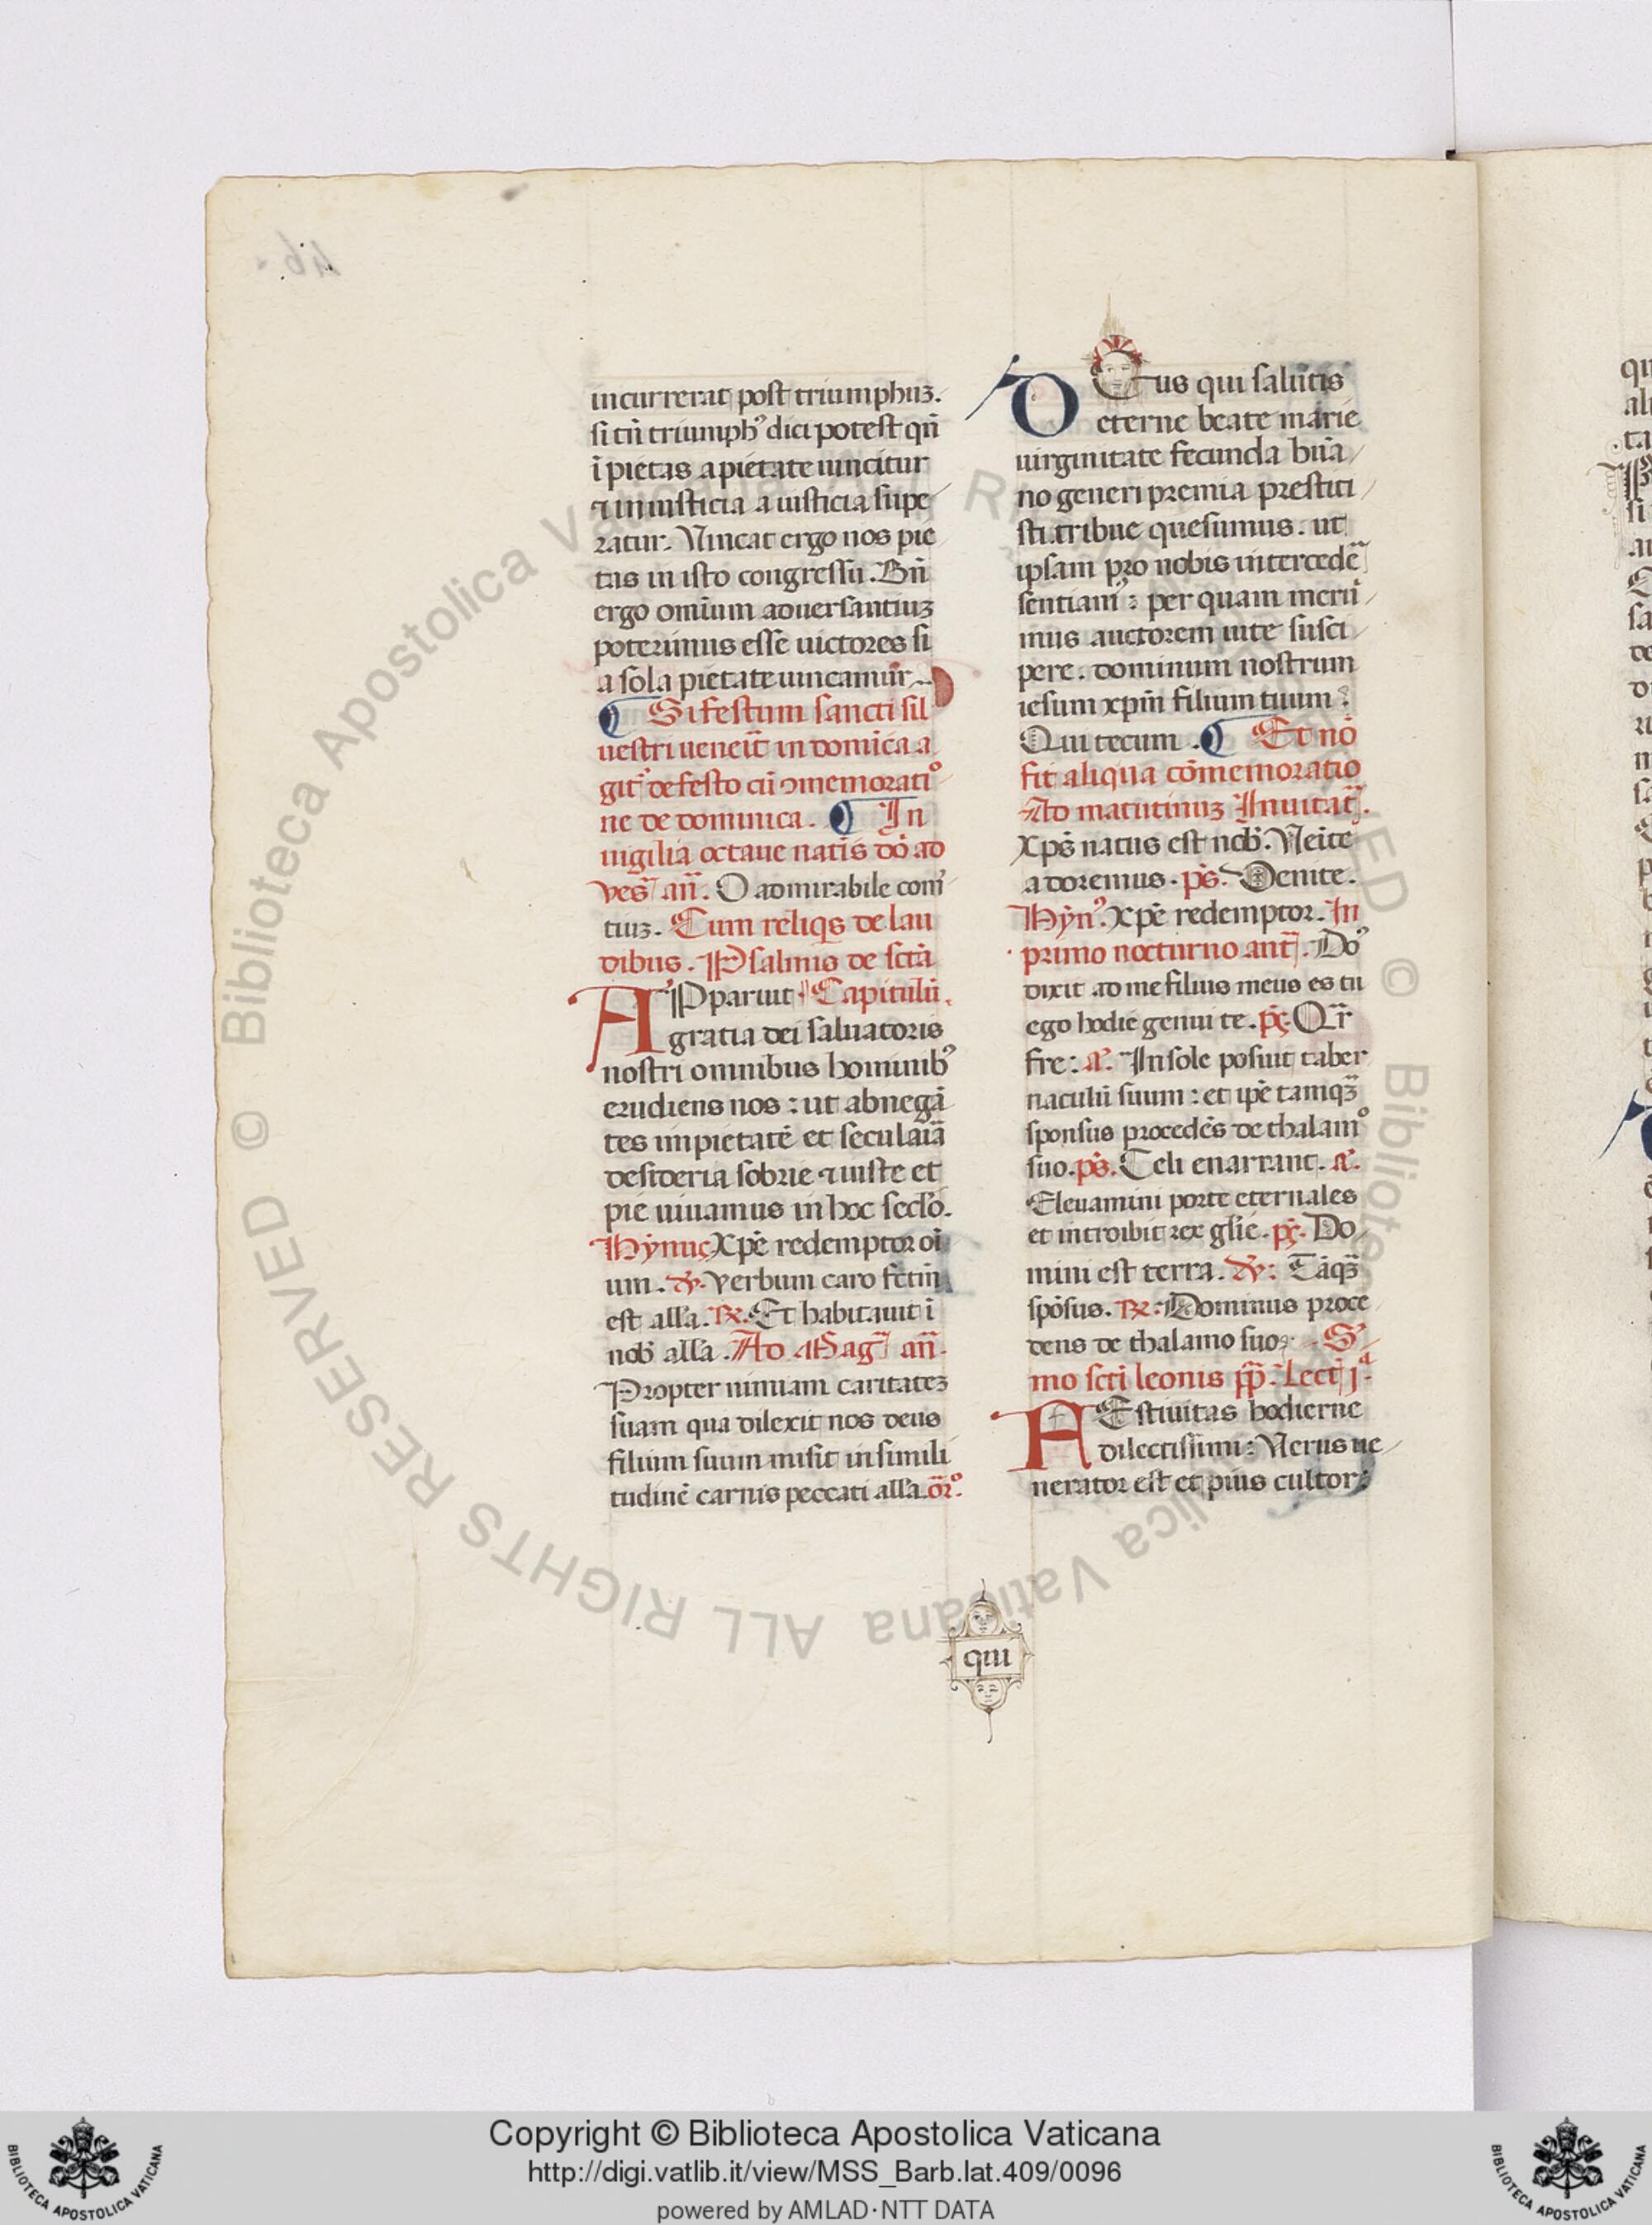 incurrerat post triumphuꝫ.
si tn̄ triumphꝰ dici potest qn̄
ī pietas a pietate uincitur
⁊ iniusticia a iusticia supe
ratur. Vincat ergo nos pie
tas in isto congressu. Bn̄
ergo omīum aduersantiuꝫ
poterimus esse uictores si
a sola pietate uincamur.
¶ Si festum sancti sil
uestri ueneīt in domīca a
git̄ de festo cū ɔmemoratiᵒ
ne de dominica. ¶ In
uigilia octaue natīs dō ad
ves̄ an̄. O admirabile com̄
tiuꝫ. Cum reliqs de lau
dibus. Psalmis de sctā
APparuit Capitulū.
gratia dei saluatoris
nostri omnibus hominibꝰ
erudiens nos : ut abnegā
tes impietatē et seculaīa
desideria sobrie ⁊ iuste et
pie uiuamus in hoc seclo.
Hymus Xpē redemptor oī
um. ℣. Verbum caro fctm̄
est alla. ℟. Et habitauit ī
nob̄ alla. Ad Maḡ an̄.
Propter nimiam caritateꝫ
suam qua dilexit nos deus
filium suum misit in simili
tudinē carnis peccati alla. or̄ᵒ.
DEus qui salutis
eterne beate marie
uirginitate fecunda huā
no generi premia prestiti
sti. tribue quesumus. ut
ipsam pro nobis intercedē
sentiam⁹ : per quam meru
mus auctorem uite susci
pere. dominum nostrum
iesum xpm̄ filium tuum :
Qui tecum. ¶ Et nō
fit aliqua cōmemoratio
Ad matutinuꝫ Inuitat̄.
Xps̄ natus est nob̄. Veīte
adoremus. ps̄. Venite.
Hȳnꝰ. Xpē redemptor. In
primo nocturno ant̄. Doꝰ
dixit ad me filius meus es tu
ego hodie genui te. ps̄. Qr̄
fre: a. In sole posuit taber
naculū suum : et ipē tamqꝫ
sponsus procedēs de thalamᵒ
suo. ps̄. Celi enarrant. a.
Eleuamini porte eternales
et introibit rex glie. ps̄. Do
mini est terra. ℣: Tāqꝫ
spōsus. ℟: Dominus proce
dens de thalamo suo. S̄
mo scti leonis pp̄. Lect̄ jᵃ.
FEstiuitas hodierne
dilectissimi : Verus ue
nerator est et pius cultor:
qui
Copyright © Biblioteca Apostolica Vaticana
http://digi.vatlib.it/view/MSS_Barb.lat.409/0096
powered by AMLAD·NTT DATA
BIBLIOTECA APOSTOLICA VATICANA
BIBLIOTECA APOSTOLICA VATICANA
© Biblioteca Apostolica Vaticana ALL RIGHTS RESERVED © Biblioteca Apostolica Vaticana ALL RIGHTS RESERVED